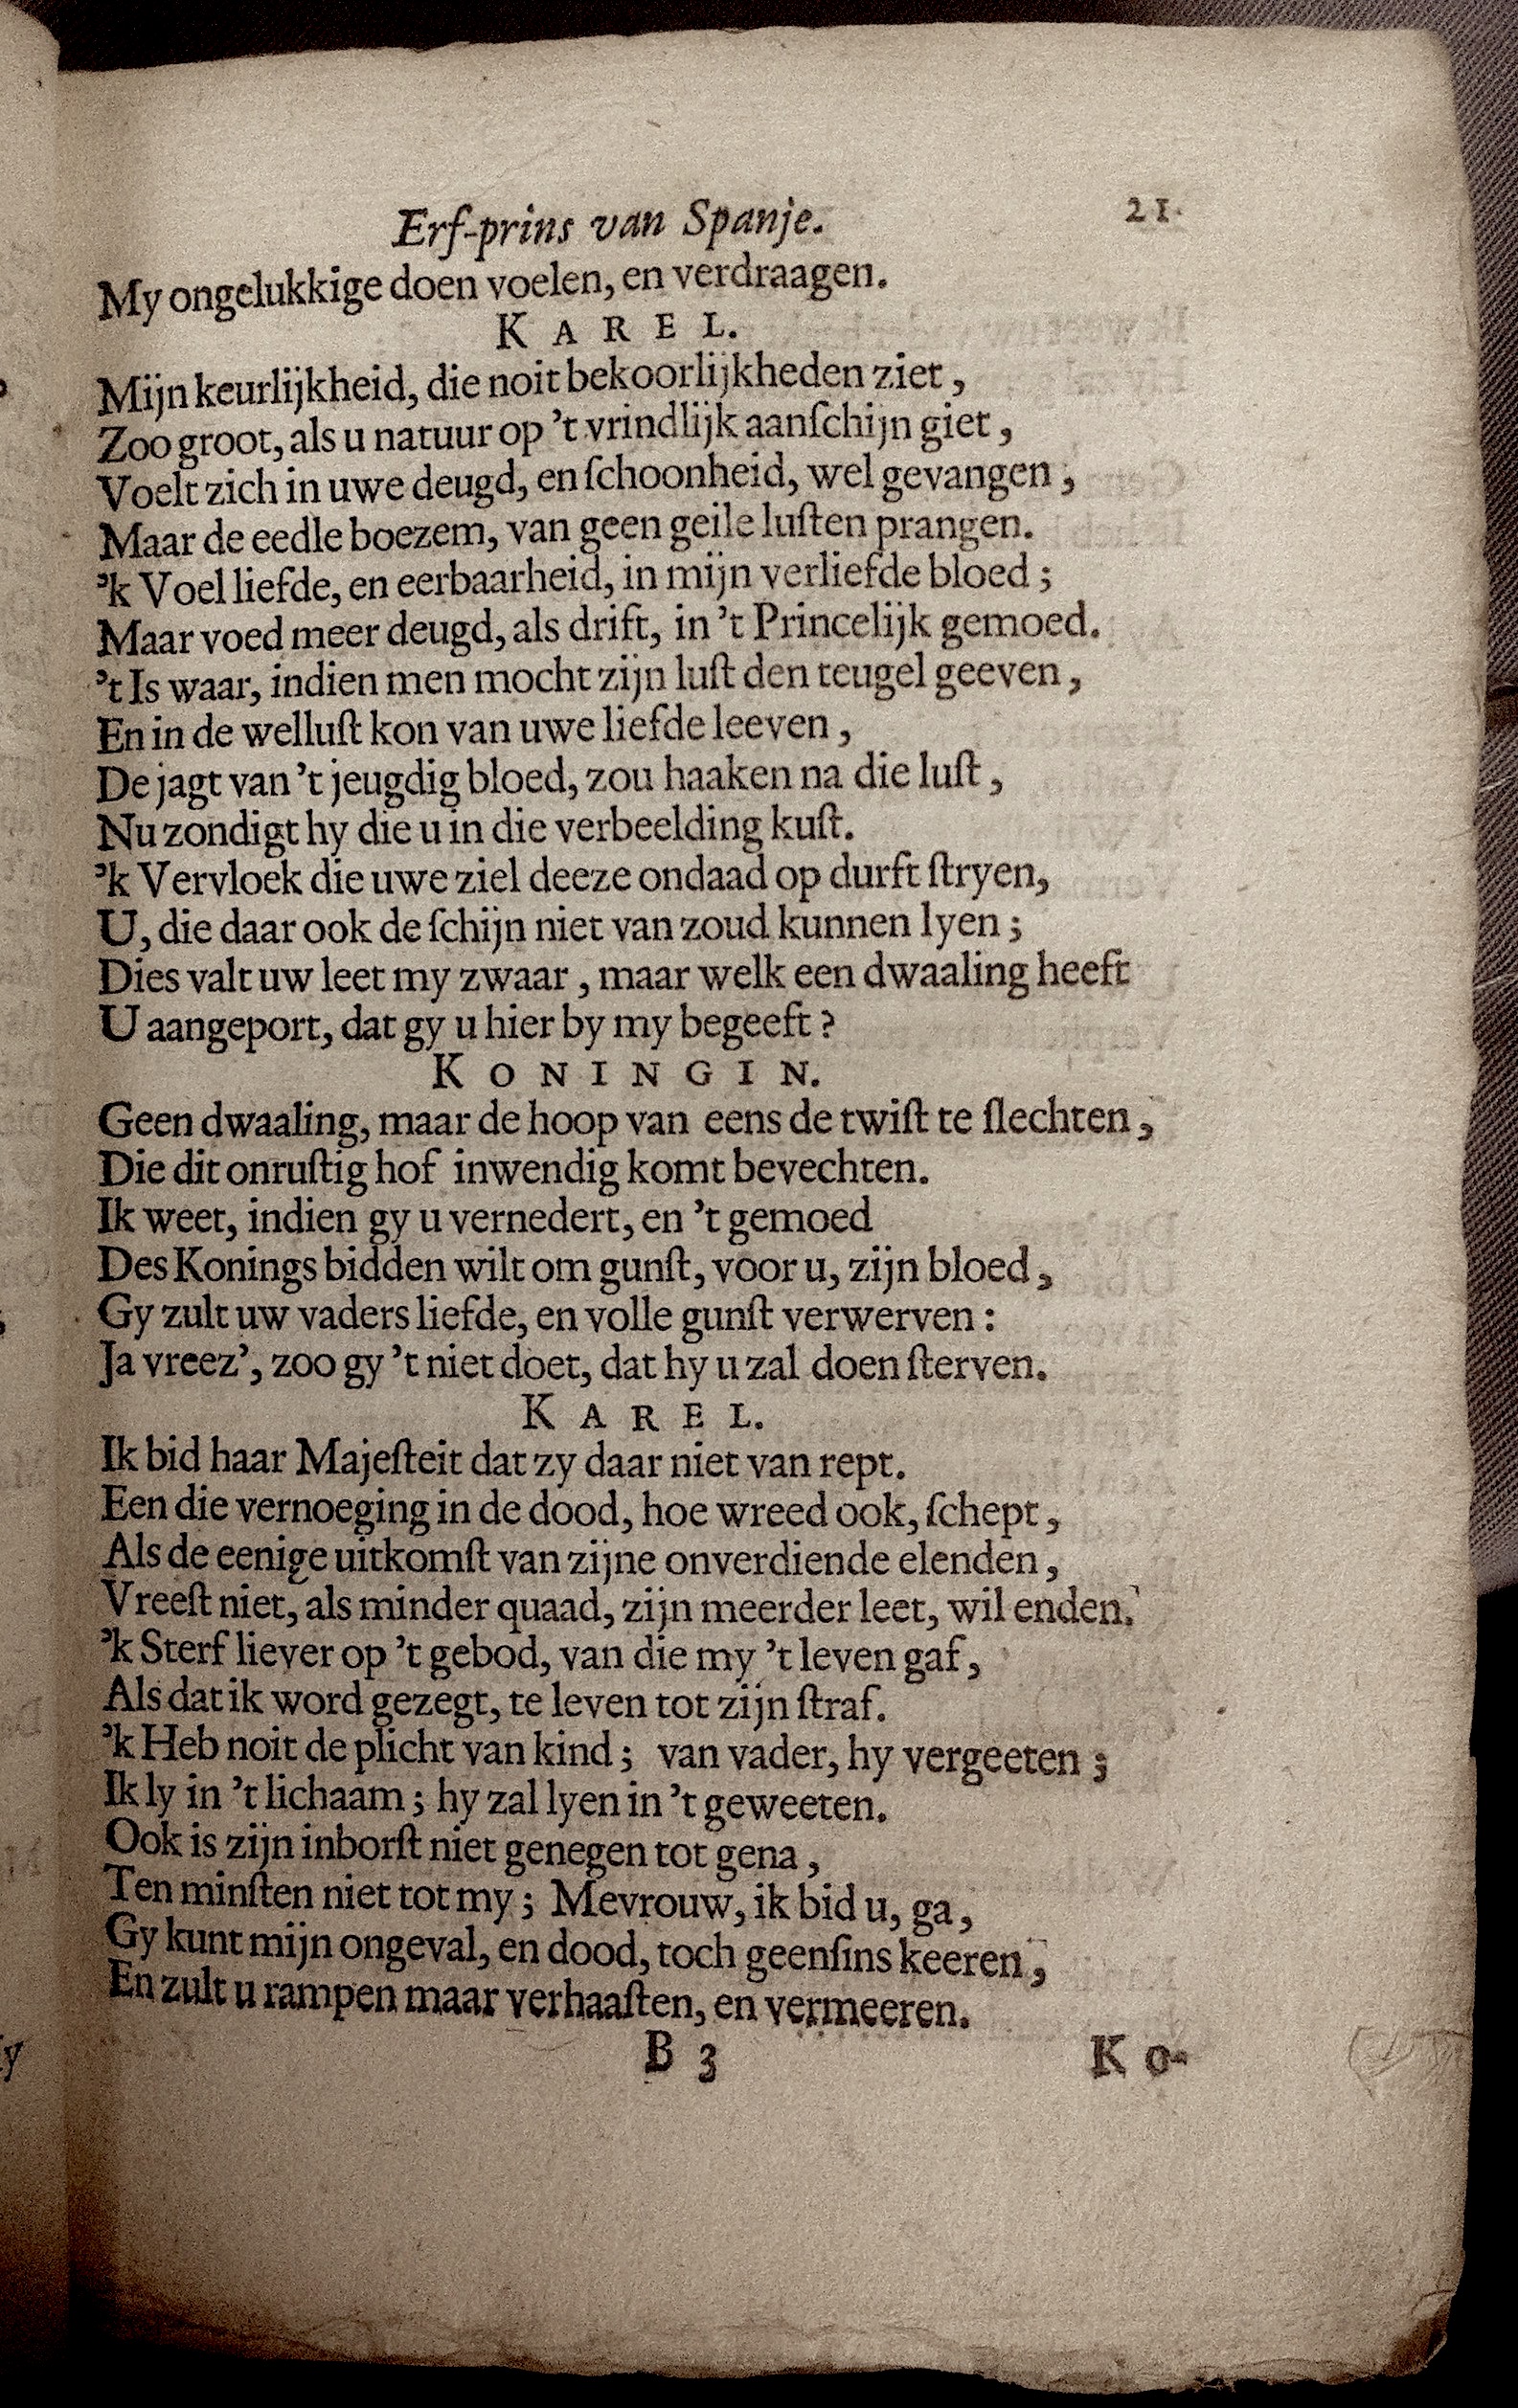 Erf-prins van Spanje. 21.
My ongelukkige doen voelen, en verdraagen.
KAREL.
Mijn keurlijkheid, die noit bekoorlijkheden ziet,
Zoo groot, als u natuur op 't vrindlijk aanſchijn giet,
Voelt zich in uwe deugd, en ſchoonheid, wel gevangen,
Maar de eedle boezem, van geen geile luſten prangen.
'k Voel liefde, en eerbaarheid, in mijn verliefde bloed;
Maar voed meer deugd, als drift, in 't Princelijk gemoed.
't Is waar, indien men mocht zijn luſt den teugel geeven,
En in de welluſt kon van uwe liefde leeven,
De jagt van 't jeugdig bloed, zou haaken na die luſt,
Nu zondigt hy die u in die verbeelding kuſt.
'k Vervloek die uwe ziel deeze ondaad op durft ſtryen,
U, die daar ook de ſchijn niet van zoud kunnen lyen;
Dies valt uw leet my zwaar, maar welk een dwaaling heeft
U aangeport, dat gy u hier by my begeeft?
KONINGIN.
Geen dwaaling, maar de hoop van eens de twiſt te ſlechten,
Die dit onruſtig hof inwendig komt bevechten.
Ik weet, indien gy u vernedert, en 't gemoed
Des Konings bidden wilt om gunſt, voor u, zijn bloed,
Gy zult uw vaders liefde, en volle gunſt verwerven:
Ja vreez', zoo gy 't niet doet, dat hy u zal doen ſterven.
KAREL.
Ik bid haar Majeſteit dat zy daar niet van rept.
Een die vernoeging in de dood, hoe wreed ook, ſchept,
Als de eenige uitkomſt van zijne onverdiende elenden,
Vreeſt niet, als minder quaad, zijn meerder leet, wil enden.
'k Sterf liever op 't gebod, van die my 't leven gaf,
Als dat ik word gezegt, te leven tot zijn ſtraf.
'k Heb noit de plicht van kind; van vader, hy vergeeten;
Ik ly in 't lichaam; hy zal lyen in 't geweeten.
Ook is zijn inborſt niet genegen tot gena,
Ten minſten niet tot my; Mevrouw, ik bid u, ga,
Gy kunt mijn ongeval, en dood, toch geenſins keeren,
En zult u rampen maar verhaaſten, en vermeeren.
B 3 Ko-